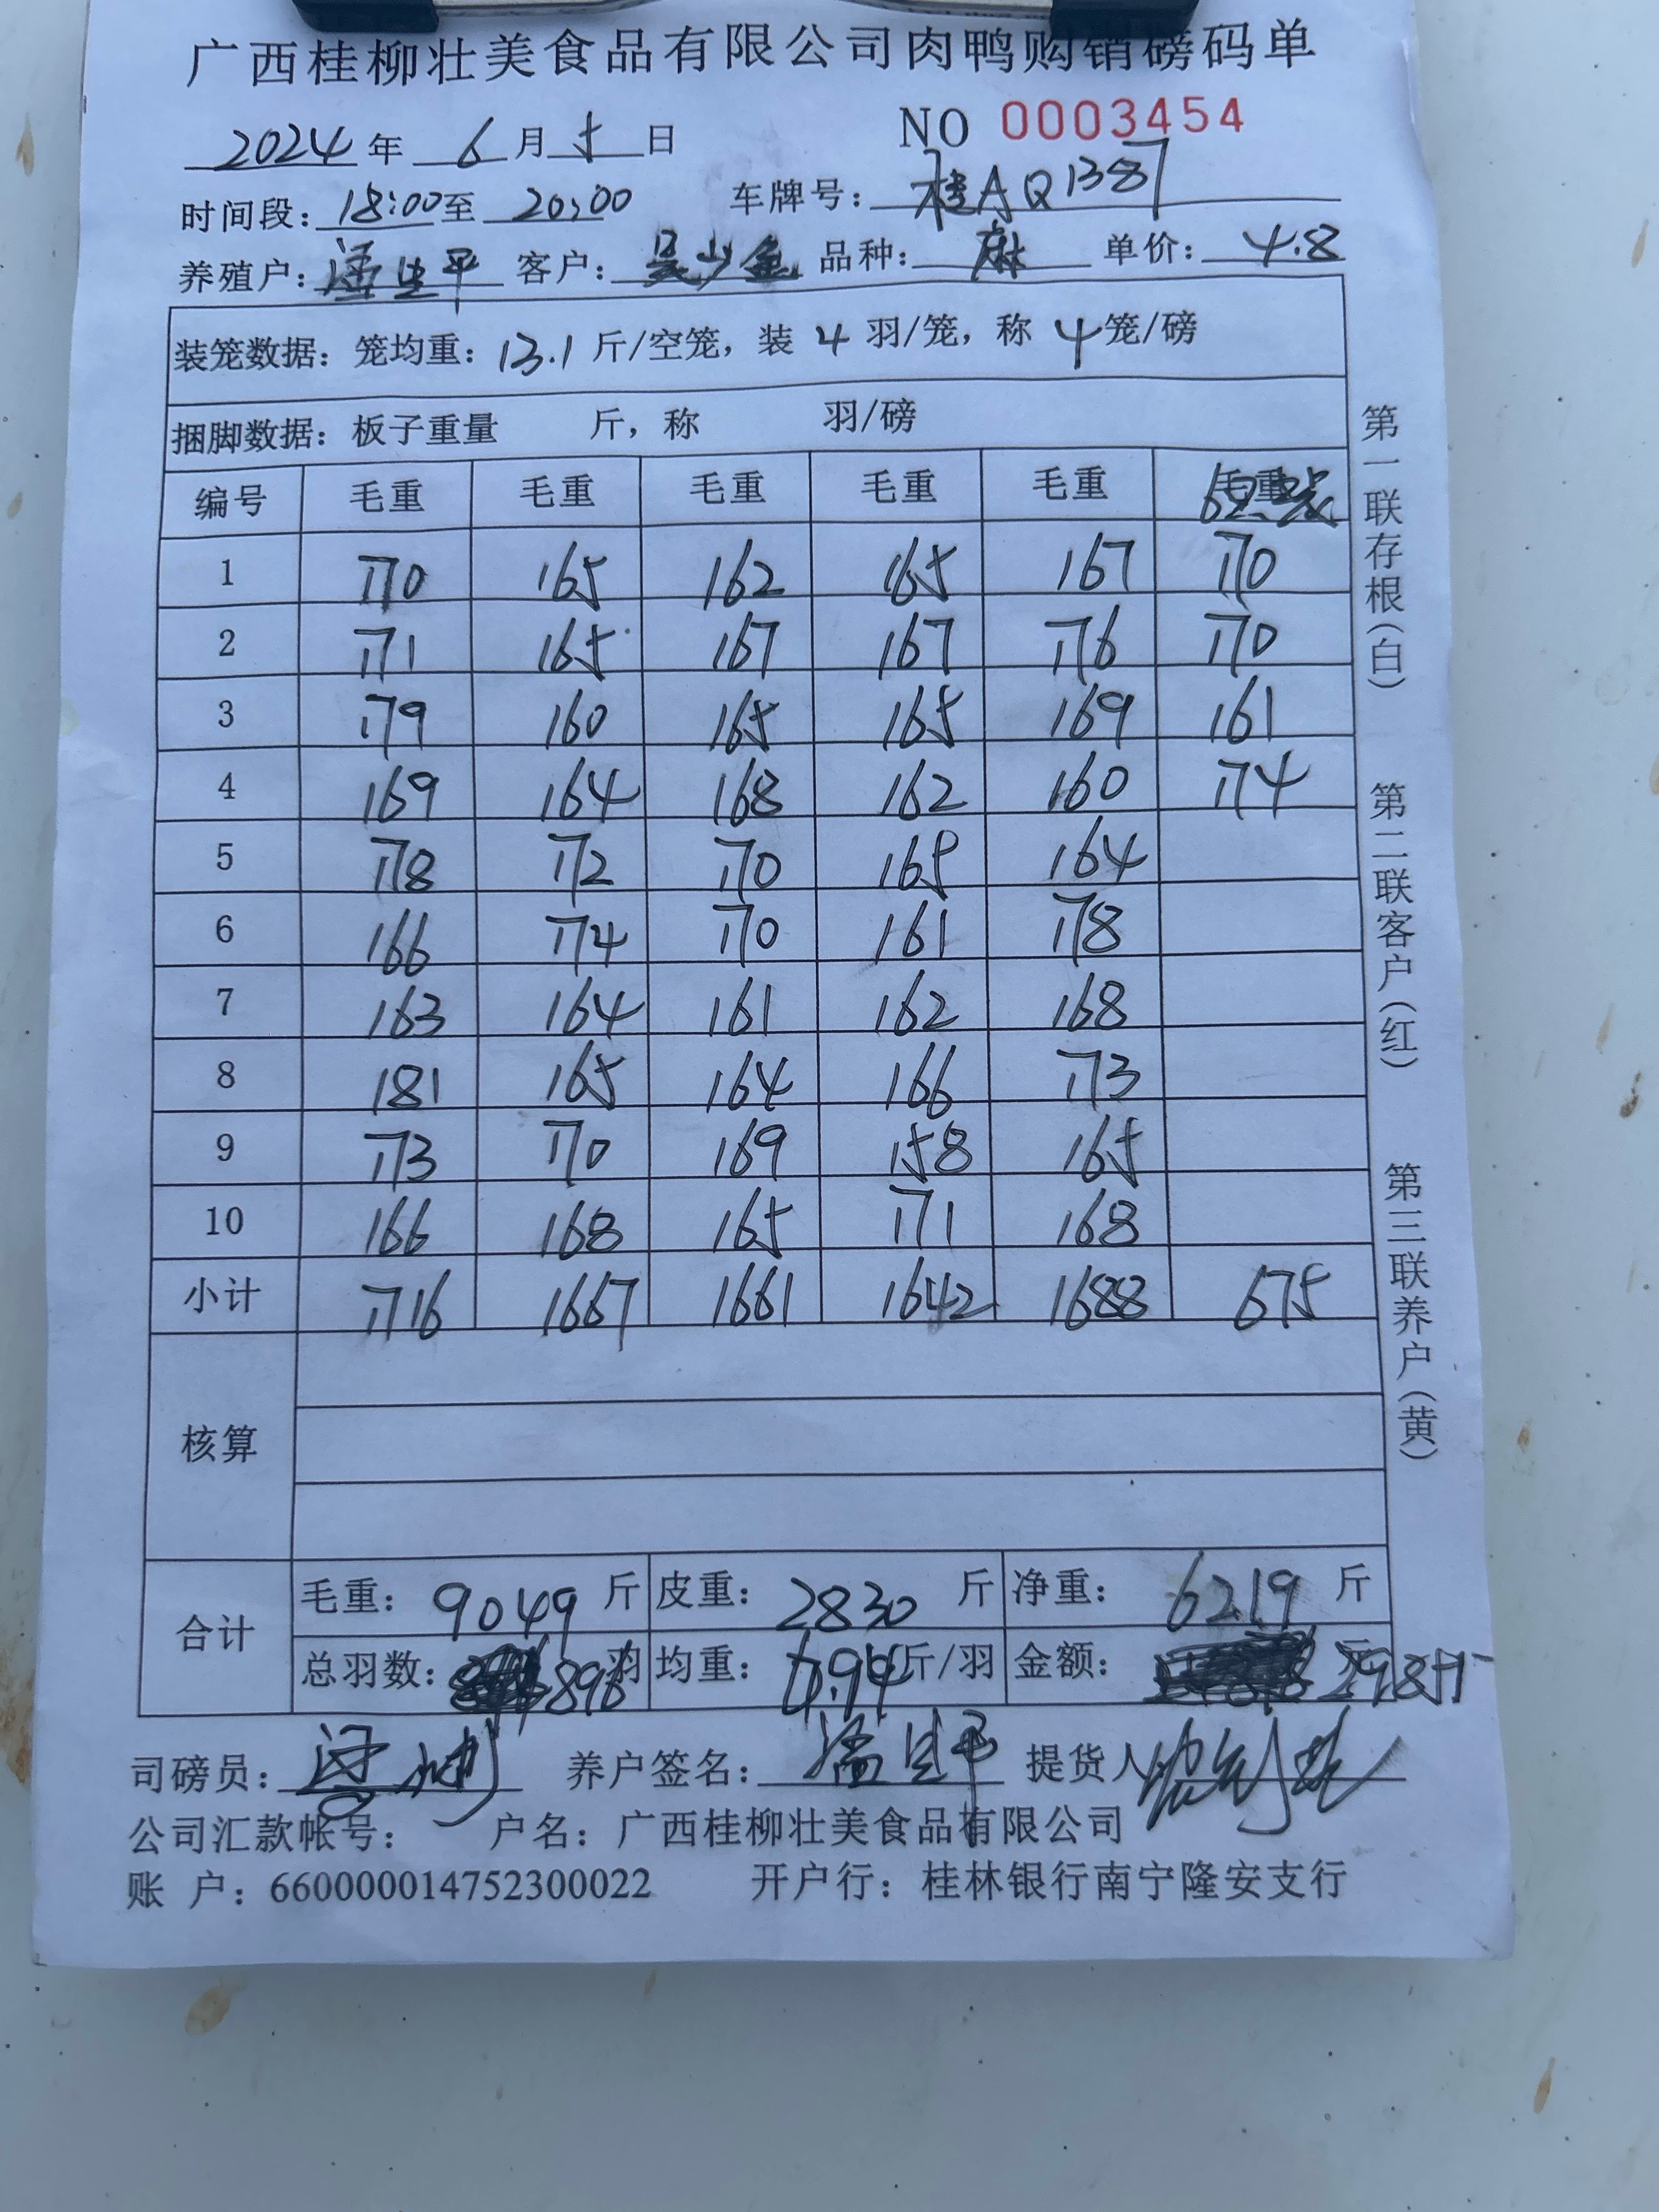 广西桂柳壮美食品有限公司肉鸭购销磅码单
2024年 6月 5日 NO 0003454
时间段：18:00至 20:00 车牌号：桂AQ1387
养殖户：潘生平 客户：吴少金 品种：麻 单价：4.8
装笼数据：笼均重：13.1斤/空笼，装 4 羽/笼，称 4笼/磅
捆脚数据：板子重量 斤，称 羽/磅
编号 毛重 毛重 毛重 毛重 毛重 毛重
1 170 165 162 165 167 170
2 171 165 167 167 176 170
3 179 160 165 165 169 161
4 169 164 168 162 160 174
5 178 172 170 165 164
6 166 174 170 161 178
7 163 164 161 162 168
8 181 165 164 166 173
9 173 170 169 158 165
10 166 168 165 171 168
小计 1716 1667 1661 1642 1688 675
核算
合计
毛重：9049斤 皮重：2830斤 净重：6219斤
总羽数：896羽 均重：6.94斤/羽 金额：29851
司磅员： 养户签名：潘生平 提货人
公司汇款帐号： 户名：广西桂柳壮美食品有限公司
账 户：660000014752300022 开户行：桂林银行南宁隆安支行
第一联存根(白) 第二联客户(红) 第三联养户(黄)